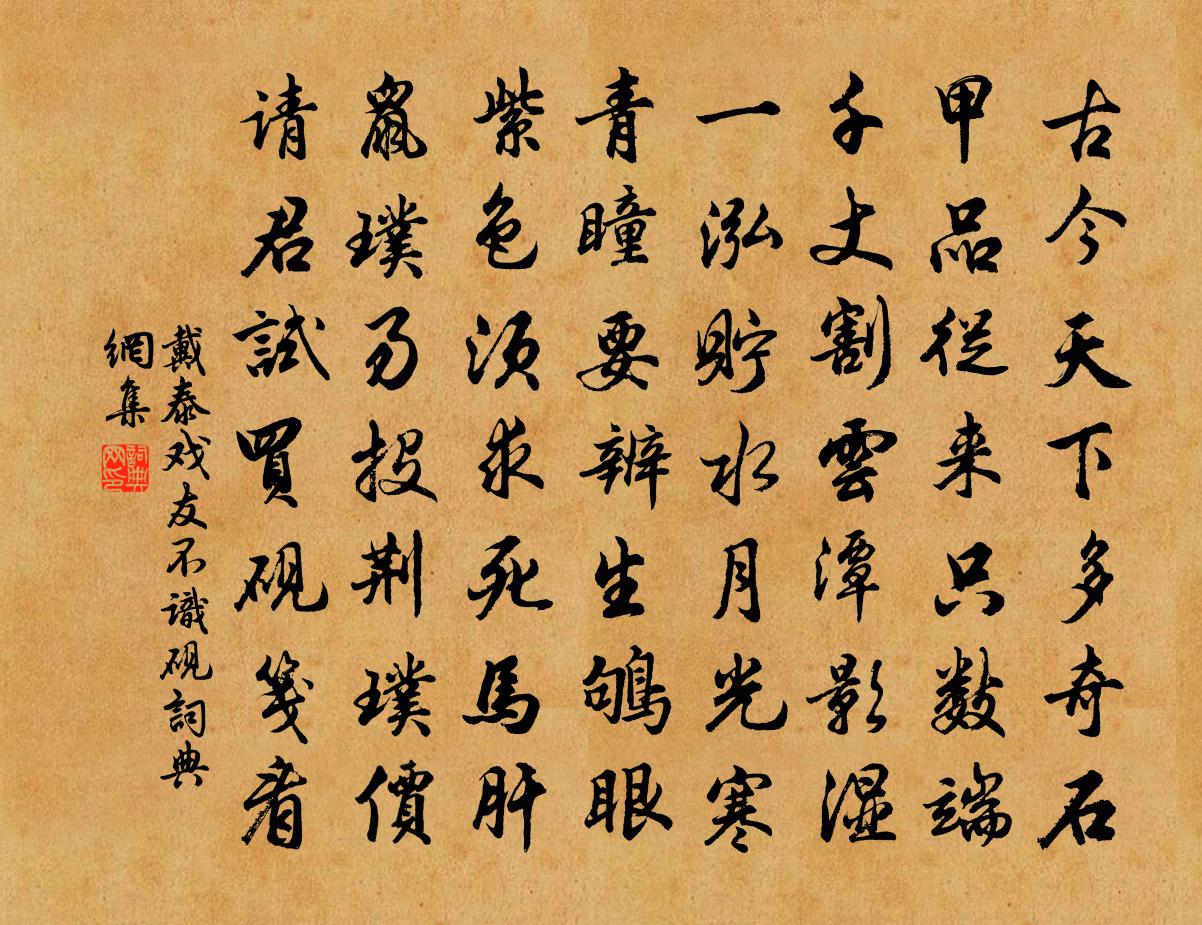 古今天下多奇石
甲品從来只数端
千丈割雲潭影湿
一泓貯水月光寒
青瞳要辨生鴝眼
紫色須求死馬肝
鼠璞易投荆璞價
请君試買硯箋看
戴泰戏友不識硯詞典
網集
詞典
网印